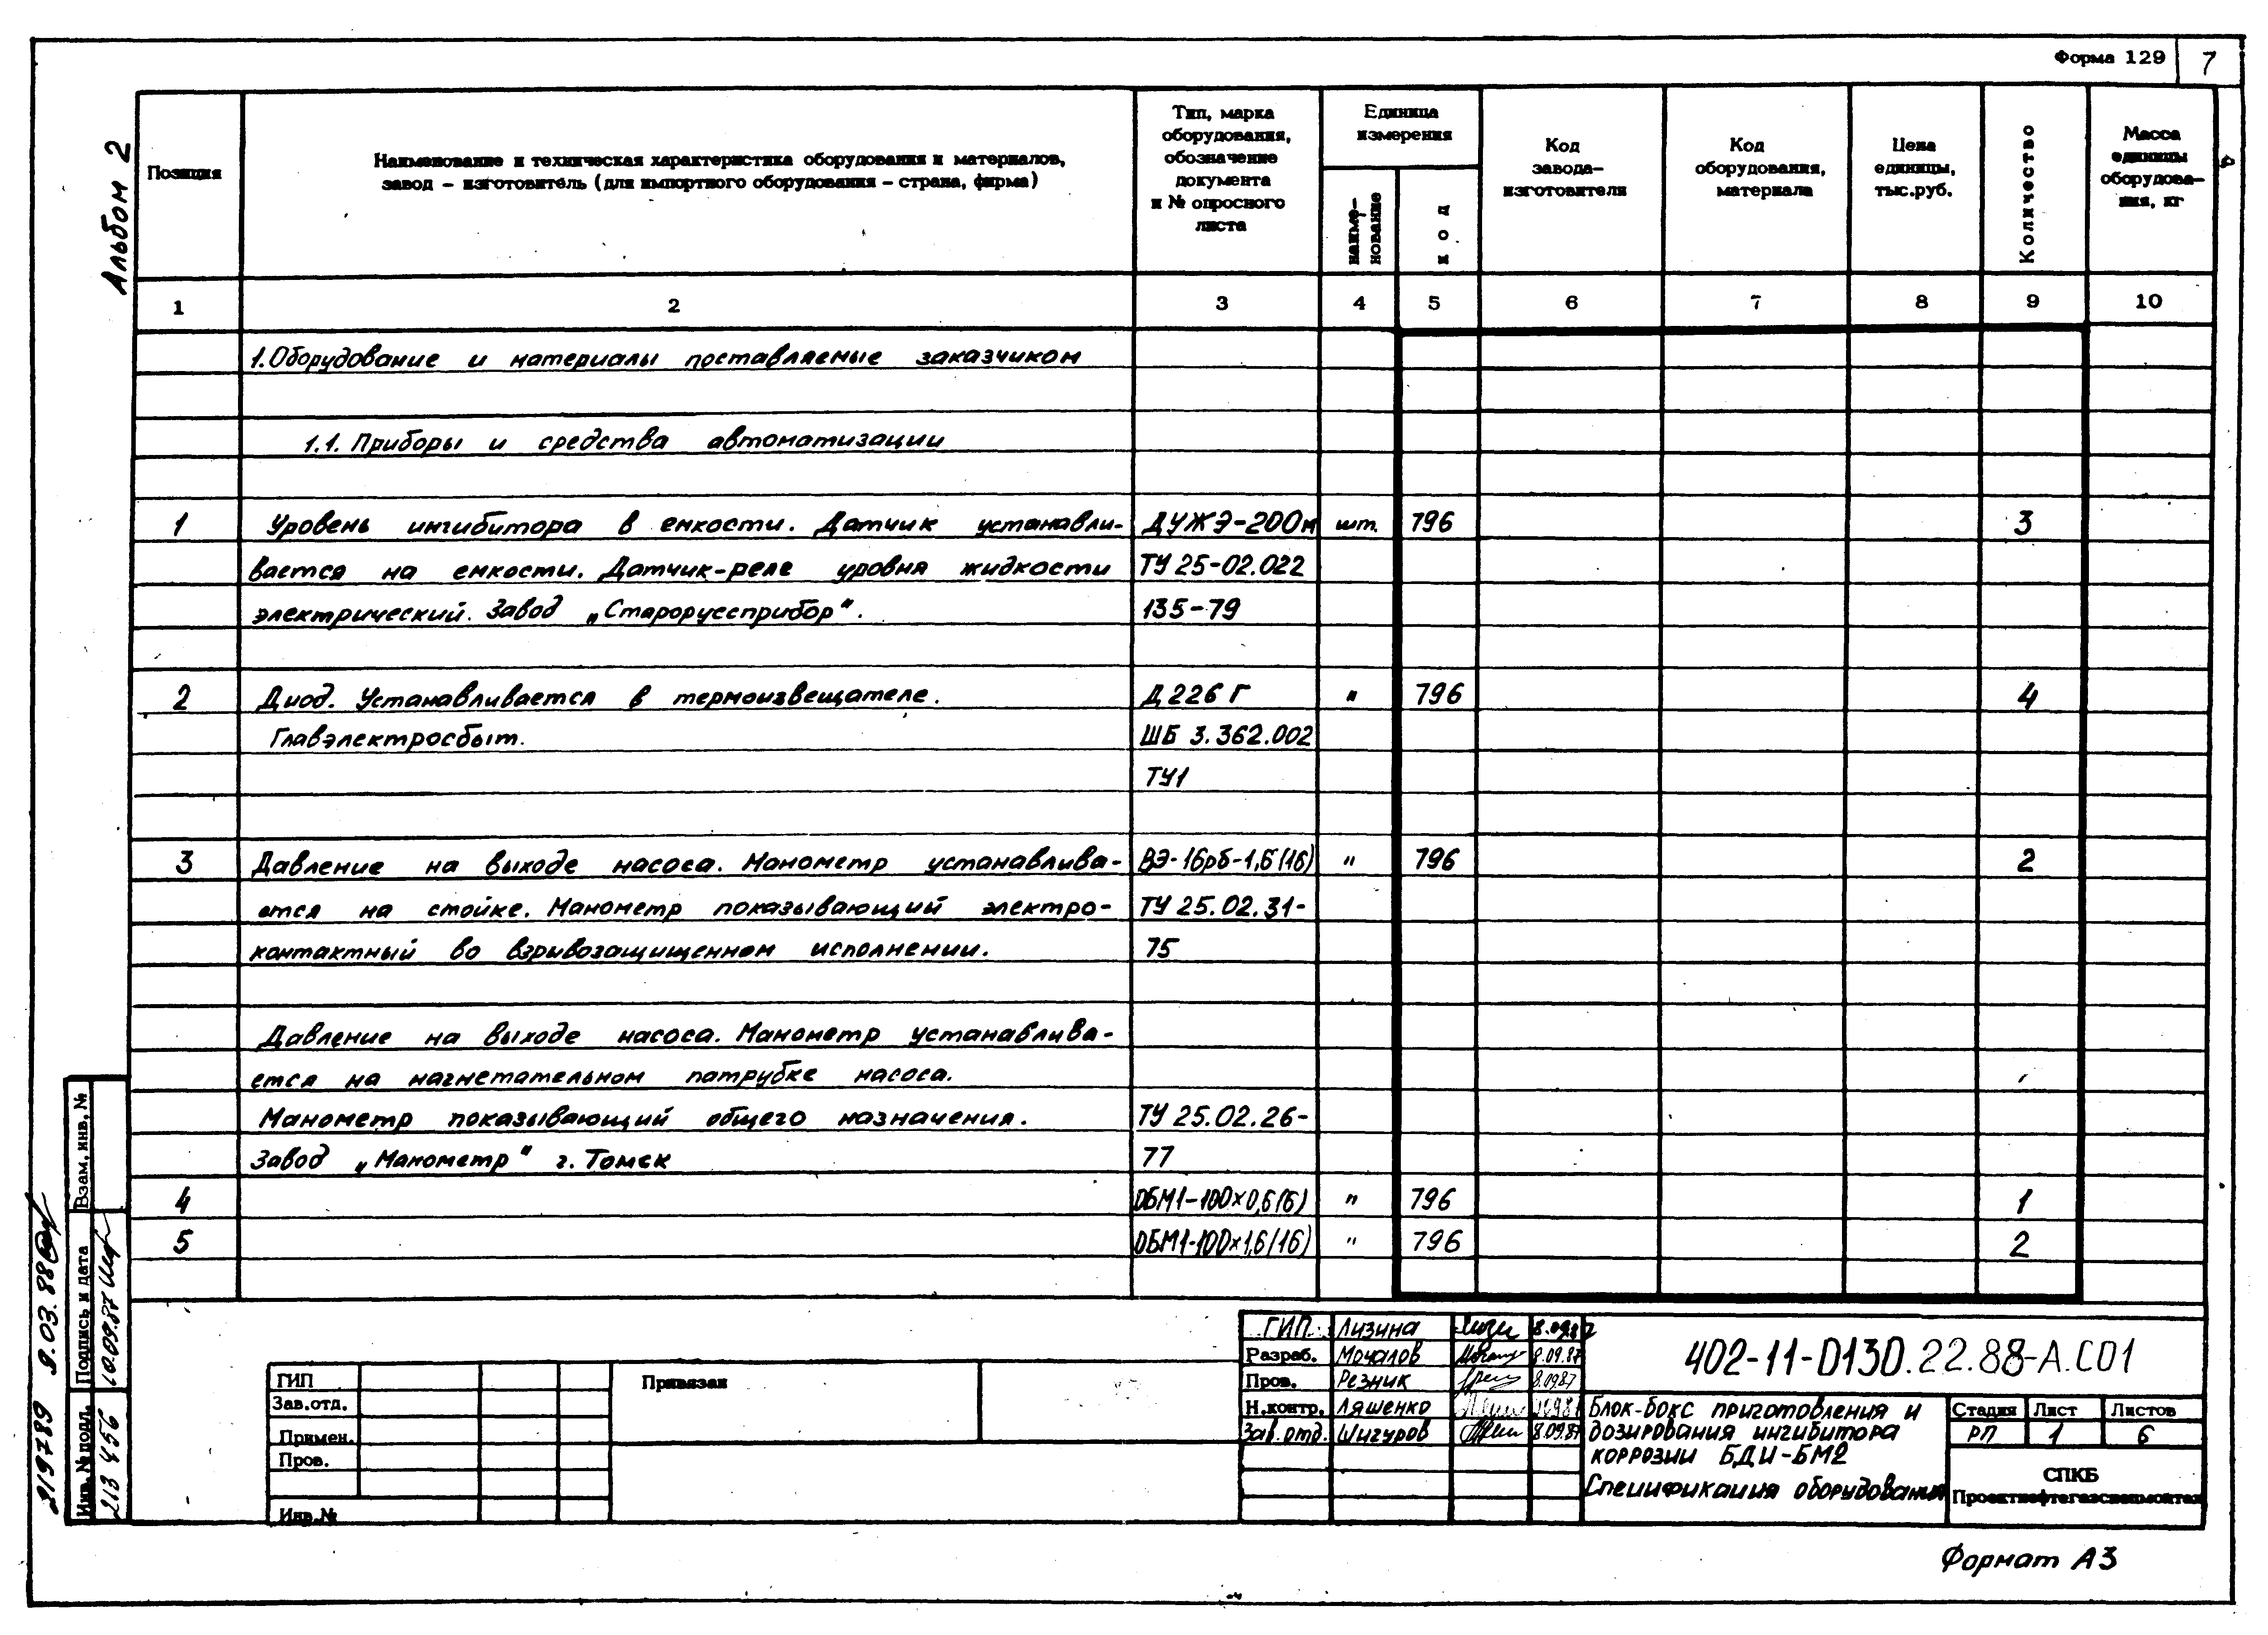 Форма 129
7
Альбом 2
Позиция
Наименование и техническая характеристика оборудования и материалов,
завод – изготовитель (для импортного оборудования – страна, фирма)
Тип, марка
оборудования,
обозначение
документа
и № опросного
листа
Единица
измерения
наиме-
нование
код
Код
завода-
изготовителя
Код
оборудования,
материала
Цена
единицы,
тыс.руб.
Количество
Масса
единицы
оборудова-
ния, кг
1 2 3 4 5 6 7 8 9 10
1. Оборудование и материалы поставляемые заказчиком
1.1. Приборы и средства автоматизации
1 Уровень ингибитора в емкости. Датчик устанавли- ДУЖЭ-200м шт. 796 3
вается на емкости. Датчик-реле уровня жидкости ТУ 25-02.022
электрический. Завод „Старорусприбор". 135-79
2 Диод. Устанавливается в термоизвещателе. Д226Г " 796 4
Главэлектросбыт. ШБ 3.362.002
ТУ1
3 Давление на выходе насоса. Манометр устанавлива- ВЭ-16рб-1,6(16) " 796 2
ется на стойке. Манометр показывающий электро- ТУ 25.02.31-
контактный во взрывозащищенном исполнении. 75
Давление на выходе насоса. Манометр устанавлива-
ется на нагнетательном патрубке насоса.
Манометр показывающий общего назначения. ТУ 25.02.26-
Завод „Манометр" г. Томск 77
4 ОБМ1-100х0,6(6) " 796 1
5 ОБМ1-100х1,6(16) " 796 2
Взам. инв. №
Подпись и дата
10.09.87
Инв. № подл.
213456
219789 9.03.88
ГИП
Зав.отд.
Примен.
Пров.
Инв.№
Привязан
ГИП Лизина 8.09.87
Разраб. Мочалов 8.09.87
Пров. Резник 8.09.87
Н.контр. Ляшенко
Зав.отд. Шигуров 8.09.87
402-11-0130.22.88-А.СО1
Блок-бокс приготовления и
дозирования ингибитора
коррозии БДИ-БМ2
Спецификация оборудования
Стадия Лист Листов
РП 1 6
СПКБ
Проектнефтегазспецмонтаж
Формат А3